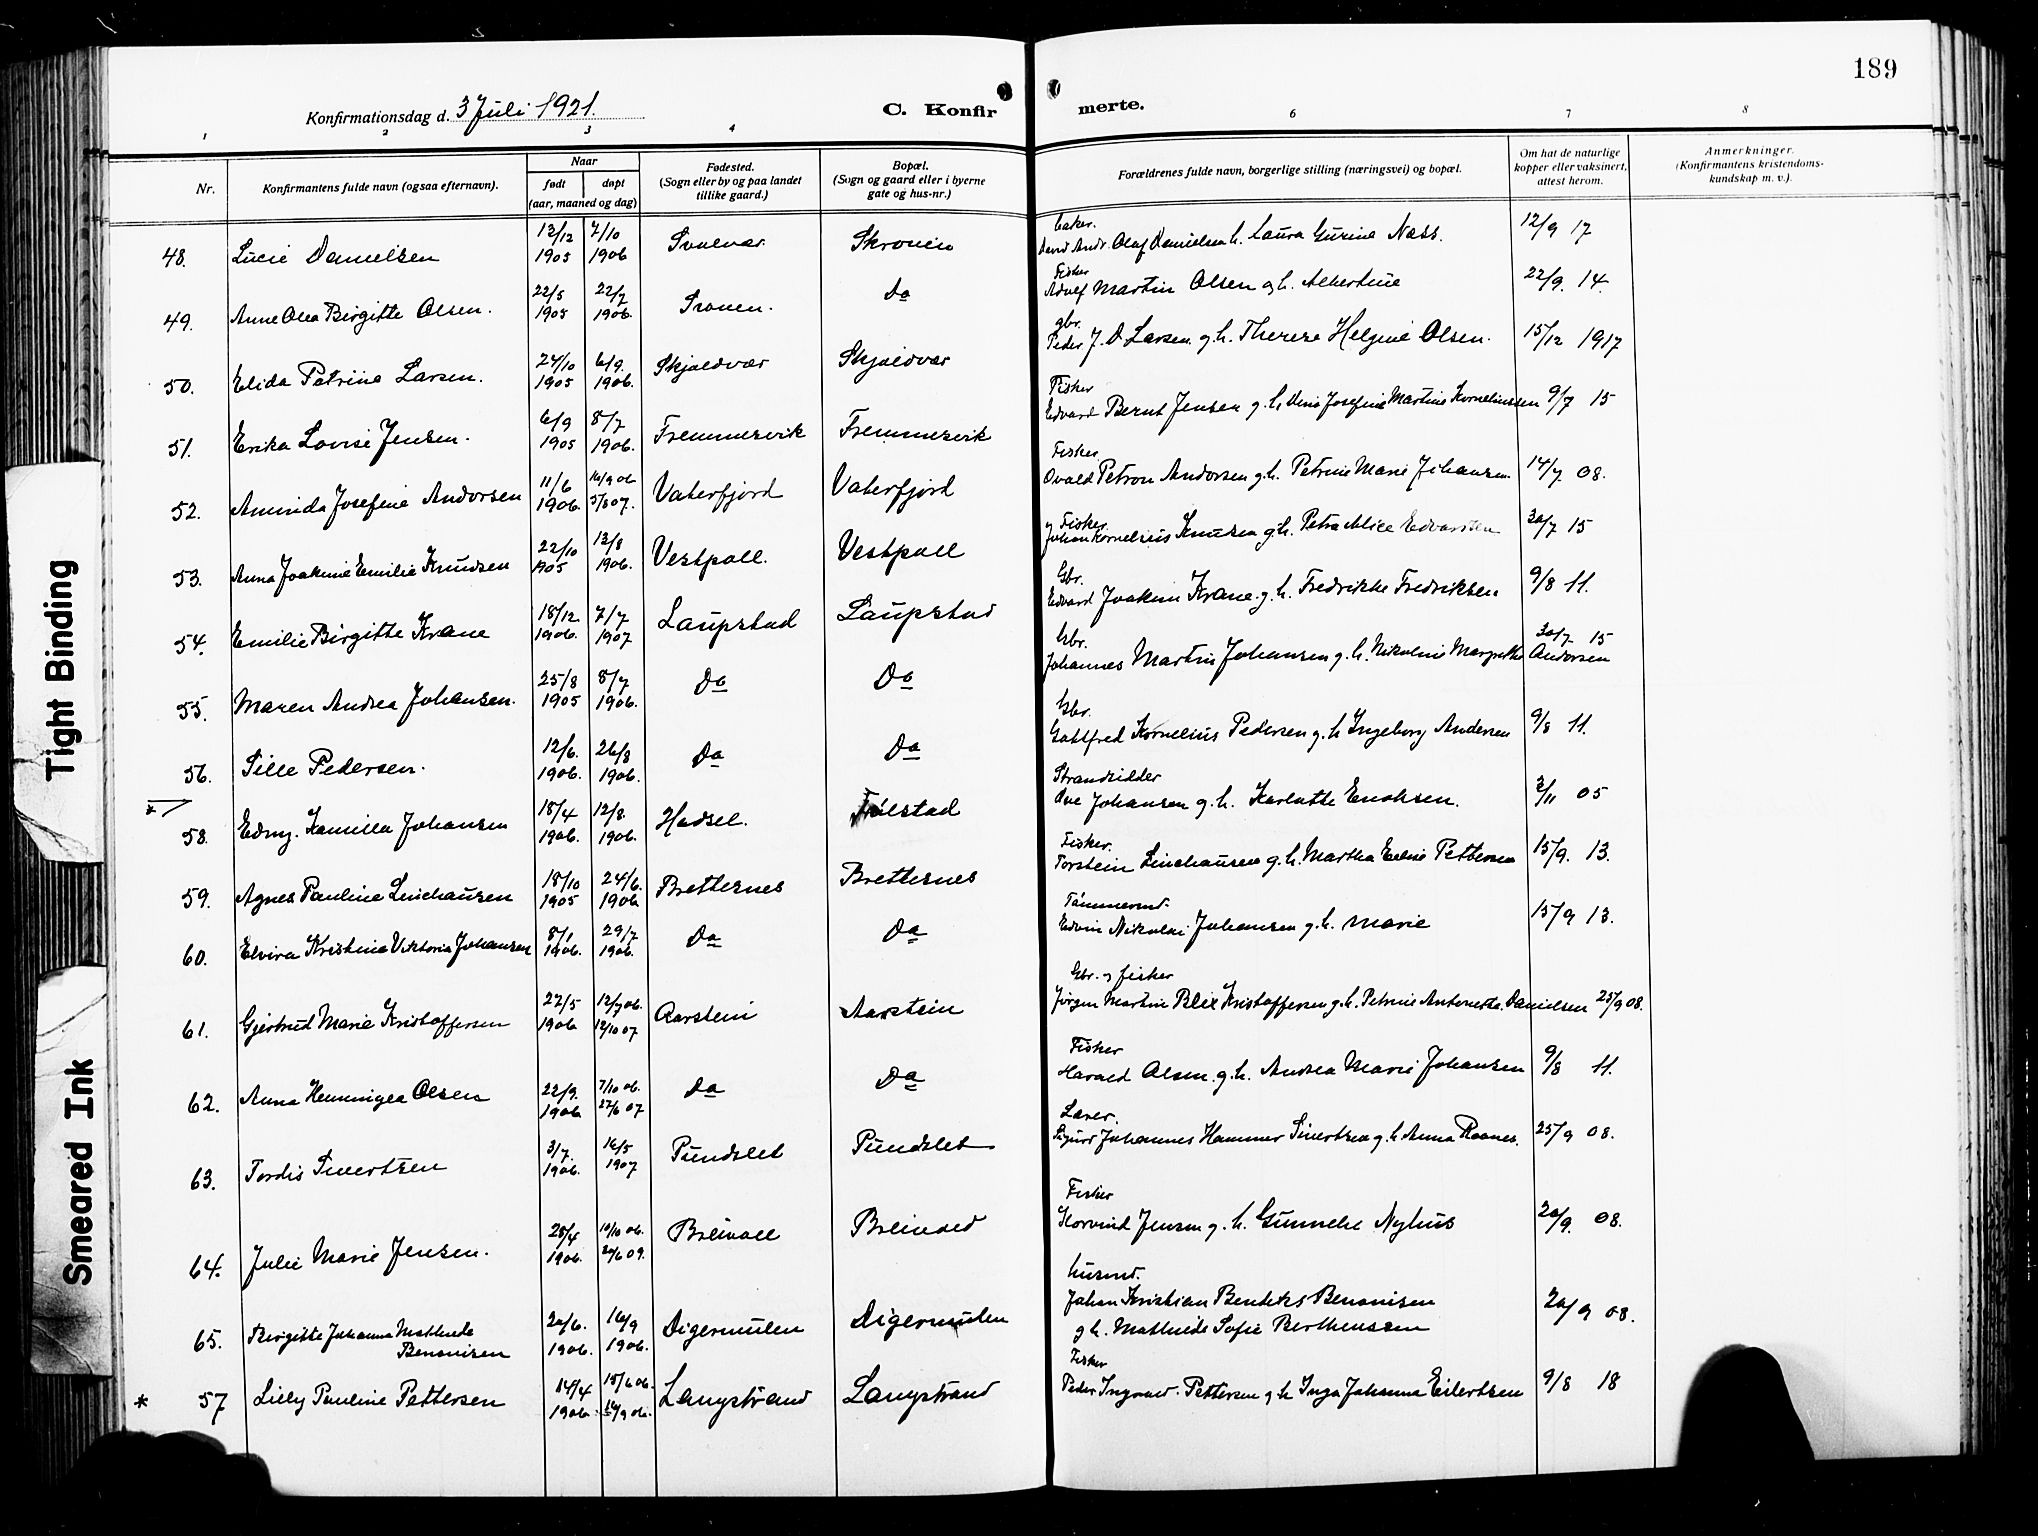 189
Konfirmationsdag d. 3 Juli 1921.
C. Konfirmerte.
1 2 3 4 6 7 8
Nr.
Konfirmantens fulde navn (ogsaa efternavn).
Naar
født døpt
(aar, maaned og dag)
Fødested.
(Sogn eller by og paa landet
tillike gaard.)
Bopæl.
(Sogn og gaard eller i byerne
gate og hus-nr.)
Forældrenes fulde navn, borgerlige stilling (næringsvei) og bopæl.
Om hat de naturlige
kopper eller vaksinert,
attest herom.
Anmerkninger.
(Konfirmantens kristendoms-
kundskap m. v.).
48. Lucie Danielsen 12/12 1905 7/10 1906 Svolvær Skroven
Olaf Danielsen h. Laura Gurine Næss. 12/9 17
49. Anne Olea Birgitte Olsen. 22/5 1905 22/7 1906. Do
Fisker
Adolf Martin Olsen g h. Albertine 22/9. 14.
50. Elida Petrine Larsen. 24/10 1905 6/9. 1906. Skjoldvær Skjoldvær
gbr.
Peder J. D Larsen g. h. Therese Helgine Olsen. 15/12 1917
51. Erika Lovise Jensen. 6/9 1905 8/7 1906. Fremmervik Fremmervik
Fisker
Edvard Bernt Jensen g. h. Josefine Martine Korneliussen 9/7 15
52. Aminda Josefine Andorsen 11/6 1906. 16/9 06 5/8 07. Vaterfjord Vaterfjord
Fisker
Ovald Petron Andorsen g. h. Petrine Marie Johansen. 14/7 08.
53. Anna Joakime Emilie Knudsen 22/10 1905 12/8 1906. Vestpoll. Vestpoll
Fisker
Johan Kornelius Knutsen g. h. Petra Alice Edvardsen 30/7 15
54. Emilie Birgitte Krane 18/12 1906. 7/7 1907 Laupstad Laupstad
Gbr.
Edvard Joakim Krane. g. h. Fredrikke Fredriksen 9/8 11.
55. Maren Andrea Johansen. 25/8 1905 8/7 1906. Do Do
Gbr.
Johannes Martin Johansen g. h. Nikoline Margrethe Andorsen 30/7 15
56. Sille Pedersen. 12/6. 1906. 26/8 1906. Do Do
Gbr.
Gottfred Kornelius Pedersen g. h Ingeborg Andersen 9/8 11.
*
58. Edny. Kamilla Johansen 18/4 1906. 12/8. 1906. Hadsel.
Strandsidder
Ove Johansen g. h. Karlotte Enoksen. 2/11 05
59. Agnes Pauline Linehausen 18/10 1905 24/6. 1906 Bretternes Bretternes
Fisker.
Torstein Linehausen g. h. Martha Eline Pettersen 15/9. 13.
60. Elvira Kristine Viktoria Johansen 8/1 1906. 29/7 1906. Do Do
Tømmermd.
Edvin Nikolai Johansen g. h. Marie 15/9 13.
61. Gjertrud Marie Kristoffersen 27/5 1906 12/9 06. 12/10 07 Aarstein Aarstein
Gbr. og fisker
Jørgen Martin Blix Kristoffersen g. h. Petrine Antonette. Danielsen 25/9 08.
62. Anna Henningea Olsen 22/9. 1906. 7/10 06. 27/6 07 Do Do
Fisker
Harald Olsen. g. h. Andrea Marie Johansen 9/8 11.
63. Tordis Sivertsen 3/7. 1906. 16/5 1907 Pundslet Pundslet
Lærer.
Sigurd Johannes Hammer Sivertsen g. h Anna Raanes. 25/9 08.
64. Julie Marie Jensen. 28/4 1906. 10/10 06. 24/6 09. Breivold Breivold
Fisker
Jensen g. h. Nyhus 20/9. 08.
65. Birgitte Johanna Mathilde
Benonisen 20/6. 1906. 16/9 1906. Digermulen Digermulen
husmd.
Johan Kristian Benonisen
g h. Mathilde Sofie Berthinssen 20/9 08.
* 57 Lilly Pauline Pettersen 14/4 1906. 15/6 06. 16/9 06. Langstrand Langstrand
Fisker
Peder Ingvald Pettersen g h Inga Johanna Eilertsen 9/8 18
Tight Binding
Smeared Ink